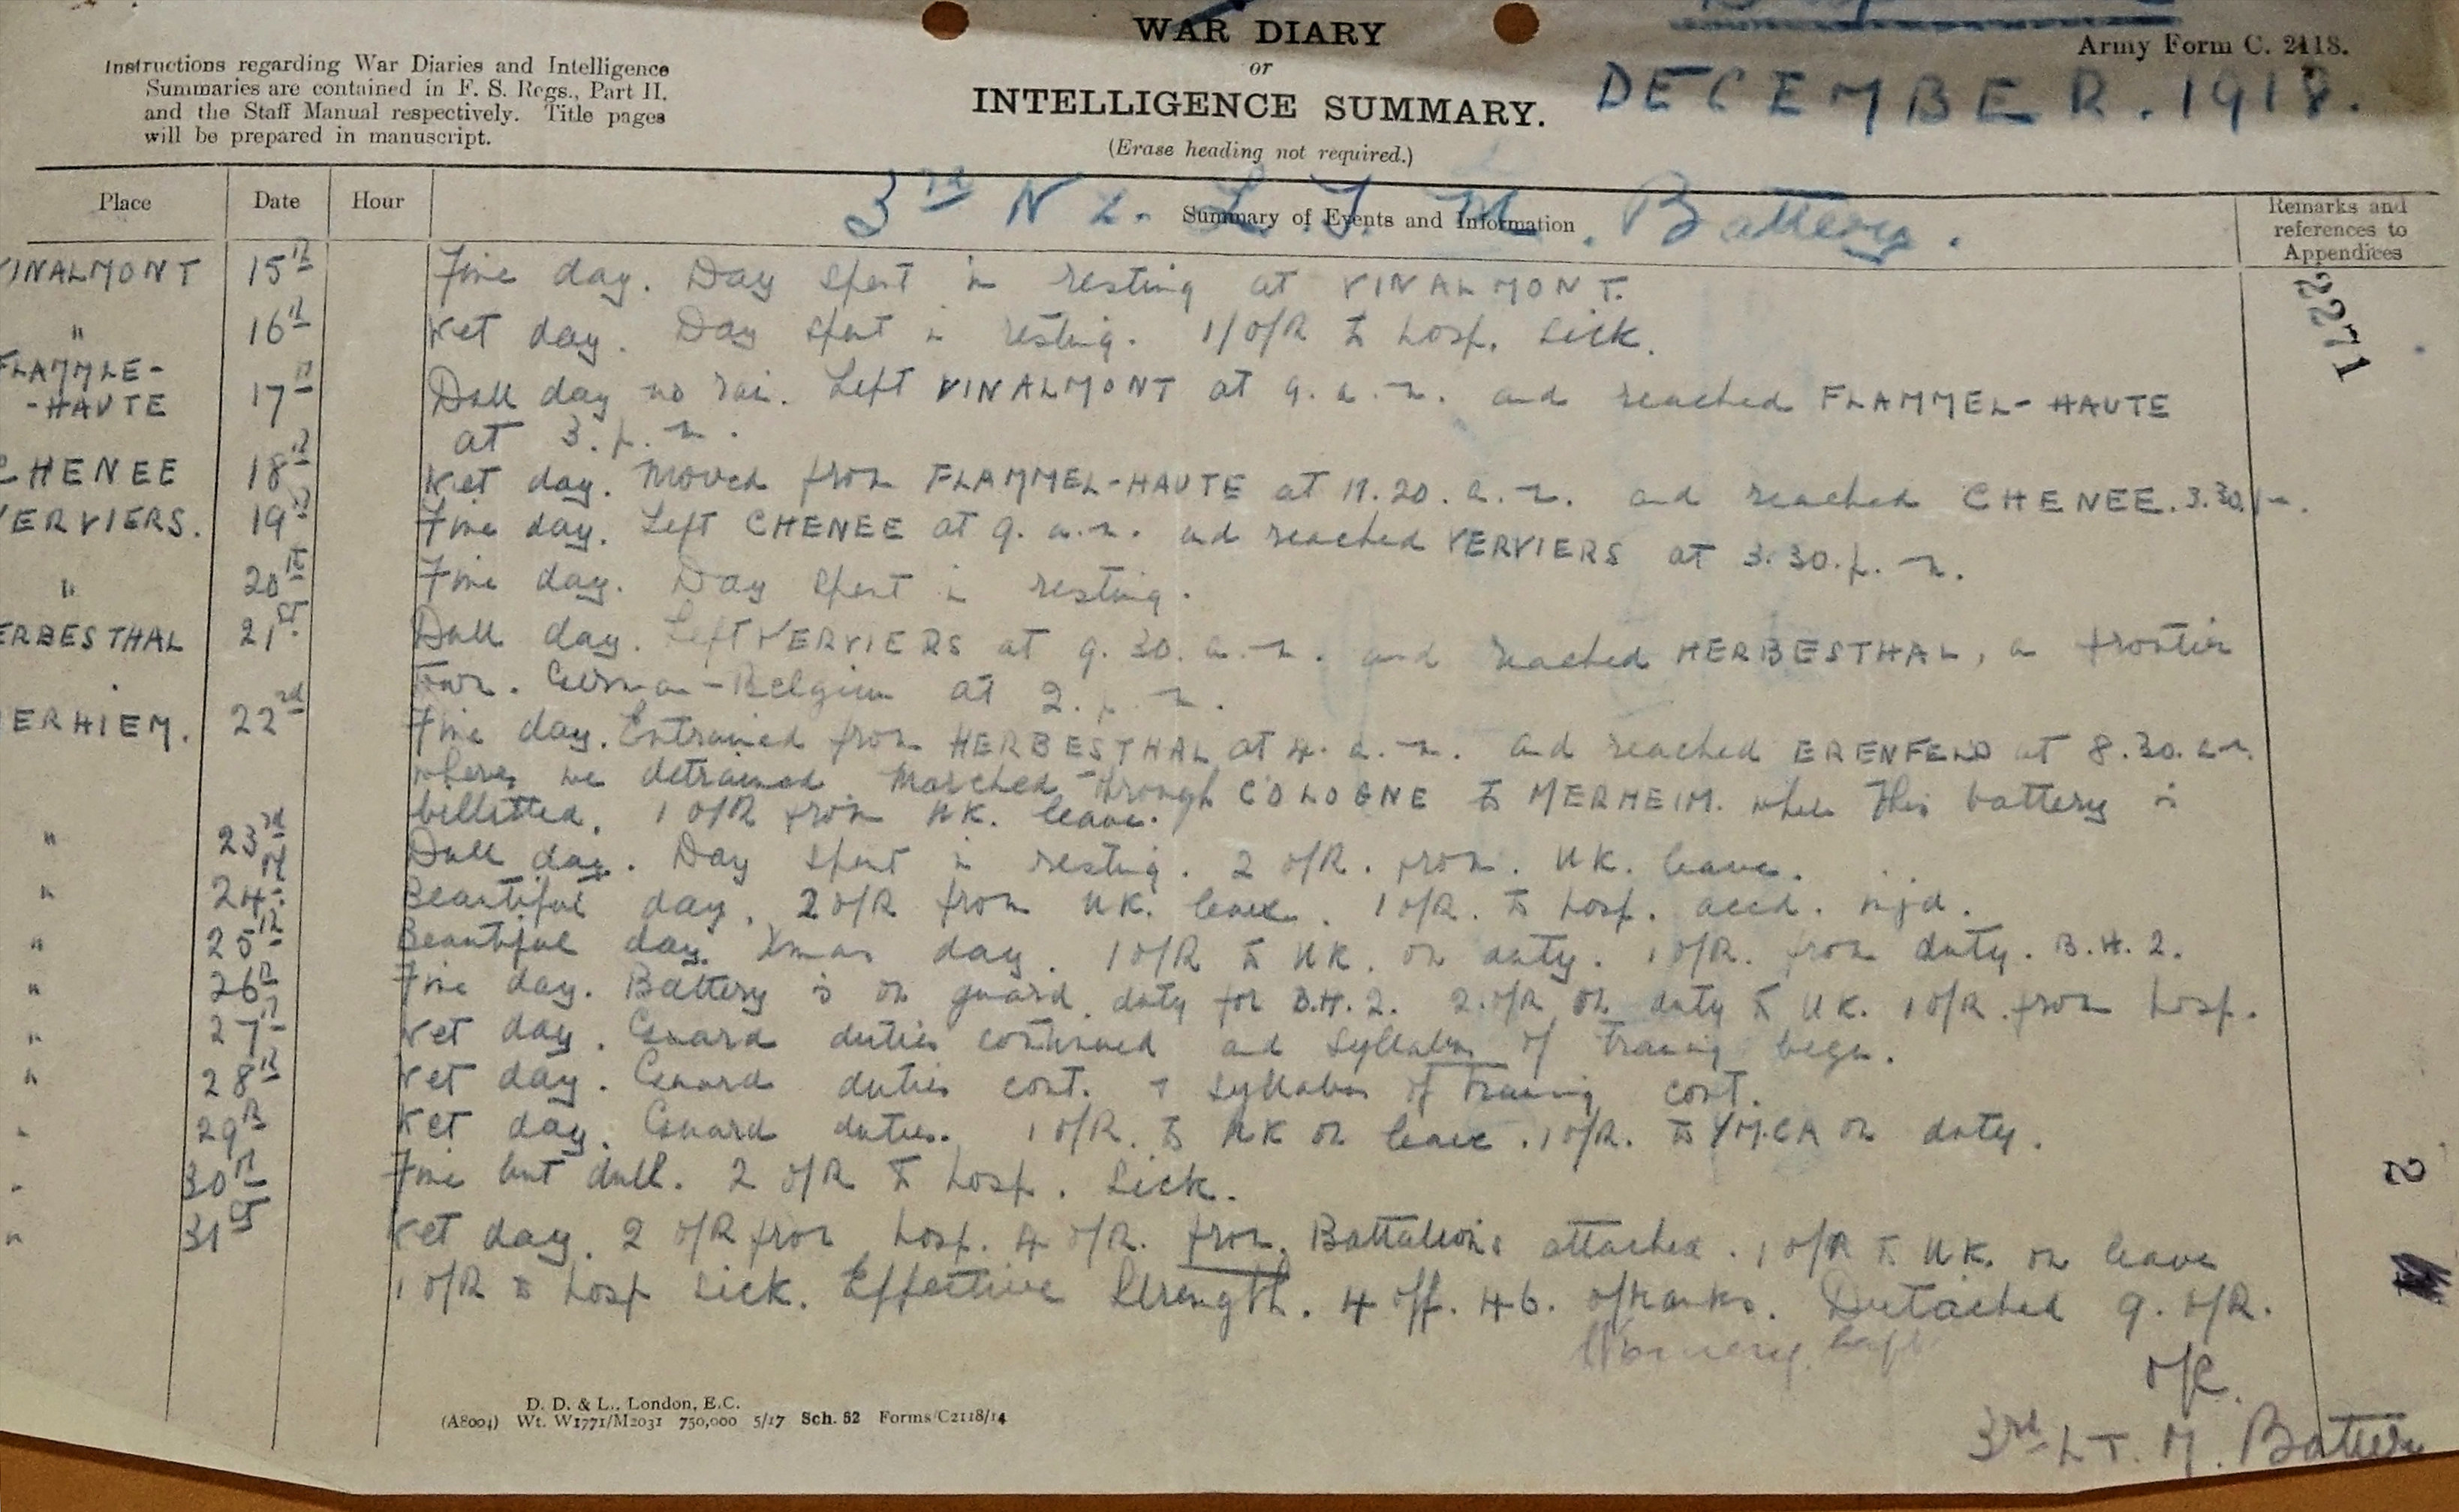 WAR DIARY
or
INTELLIGENCE SUMMARY.
(Erase heading not required.)
Army Form C. 2118.
DECEMBER. 1918.
Instructions regarding War Diaries and Intelligence
Summaries are contained in F. S. Regs., Part II.
and the Staff Manual respectively. Title pages
will be prepared in manuscript.
3rd N Z. L. T. M. Battery.
Place Date Hour Summary of Events and Information Remarks and references to Appendices
2271
VINALMONT 15th Fine day. Day spent in resting at VINALMONT.
" 16th Wet day. Day spent in resting. 1/O/R to hosp. sick.
FLAMMLE-
-HAUTE 17th Dull day no rain. Left VINALMONT at 9. a.m. and reached FLAMMEL-HAUTE
at 3.p.m.
CHENEE 18th Wet day. Moved from FLAMMEL-HAUTE at 11.20. a.m. and reached CHENEE. 3.30.pm.
VERVIERS. 19th Fine day. Left CHENEE at 9. a.m. and reached VERVIERS at 3.30.p.m.
" 20th Fine day. Day spent in resting.
ERBESTHAL 21st Dull day. Left VERVIERS at 9.30. a.m. and reached HERBESTHAL, a frontier
town. German-Belgium at 2.p.m.
MERHIEM. 22nd Fine day. Entrained from HERBESTHAL at 4. a.m. and reached ERENFELD at 8.30. am.
where we detrained. Marched through COLOGNE to MERHEIM. where this battery is
billetted. 1 O/R from UK. leave.
" 23rd Dull day. Day spent in resting. 2 O/R. from. UK. leave.
" 24th Beautiful day. 2 O/R from UK. leave. 1 O/R. to hosp. accd. injd.
" 25th Beautiful day. Xmas day. 1 O/R to UK. on duty. 1 O/R. from duty. B.H.2.
" 26th Fine day. Battery is on guard duty for B.H.2. 2.O/R on duty to UK. 1 O/R from hosp.
" 27th Wet day. Guard duties continued and syllabus of training begun.
" 28th Wet day. Guard duties cont. & syllabus of training cont.
" 29th Wet day. Guard duties. 1 O/R. to UK on leave. 1 O/R. to YMCA on duty.
" 30th Fine but dull. 2 O/R to hosp. sick.
2
" 31st Wet day. 2 O/R from hosp. 4 O/R. from. Battalions attached. 1 O/R to UK. on leave
1 O/R to hosp sick. Effective Strength. 4 off. 46. O/Ranks. Detached 9. O/R.
Capt
O/C.
3rd L T. M. Battery
D. D. & L., London, E.C.
(A8004) Wt. W1771/M2031 750,000 5/17 Sch. 52 Forms/C2118/14